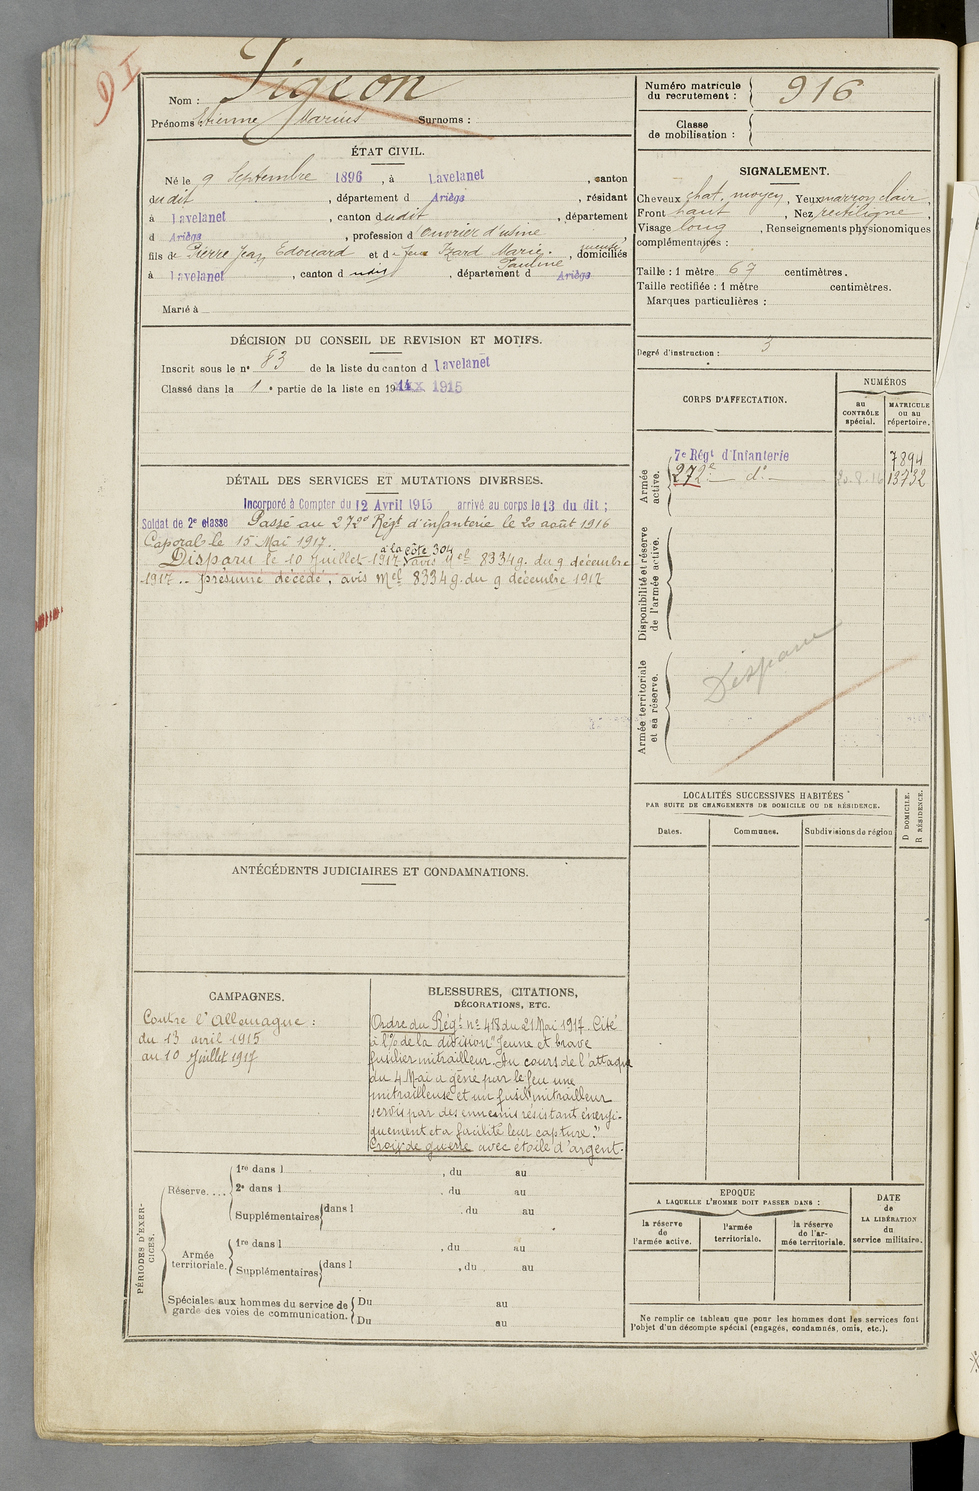 9 I
Nom : Pigeon
Prénoms : Etienne Marius Surnoms :
Numéro matricule du recrutement : 916
Classe de mobilisation :
ÉTAT CIVIL.
Né le 9 Septembre 1896, à Lavelanet, canton
dudit, département d Ariège, résidant
à Lavelanet, canton dudit, département
d Ariège, profession d ouvrier d'usine
fils de Pierre Jean Edouard et de feue Izard Marie Pauline, domiciliés
à Lavelanet, canton d udit, département d Ariège
Marié à
SIGNALEMENT.
Cheveux chat. moyen, Yeux marron clair,
Front haut, Nez rectiligne,
Visage long, Renseignements physionomiques
complémentaires :
Taille : 1 mètre 67 centimètres.
Taille rectifiée : 1 mètre centimètres.
Marques particulières :
Degré d'instruction : 3
DÉCISION DU CONSEIL DE REVISION ET MOTIFS.
Inscrit sous le n° 83 de la liste du canton d Lavelanet
Classé dans la 1e partie de la liste en 1915
CORPS D'AFFECTATION.
NUMÉROS
au CONTRÔLE spécial.
MATRICULE ou au répertoire.
Armée active.
7e Régt d'Infanterie 7894
272e d° 20-8-16 13732
Disponibilité et réserve de l'armée active.
Armée territoriale et sa réserve.
Disparu
DÉTAIL DES SERVICES ET MUTATIONS DIVERSES.
Incorporé à Compter du 12 Avril 1915 arrivé au corps le 13 du dit ;
Soldat de 2e classe Passé au 272e Régt d'infanterie le 20 août 1916
Caporal le 15 Mai 1917.
Disparu le 10 Juillet 1917 à la côte 304 avis Mel 8334 g. du 9 décembre
1917.. présumé décédé, avis Mel 8334 g. du 9 décembre 1917
LOCALITÉS SUCCESSIVES HABITÉES
PAR SUITE DE CHANGEMENTS DE DOMICILE OU DE RÉSIDENCE.
Dates. Communes. Subdivisions de région
D DOMICILE.
R RÉSIDENCE.
ANTÉCÉDENTS JUDICIAIRES ET CONDAMNATIONS.
CAMPAGNES.
Contre l'Allemagne :
du 13 avril 1915
au 10 Juillet 1917
BLESSURES, CITATIONS,
DÉCORATIONS, ETC.
Ordre du Régt n° 418 du 21 Mai 1917. Cité
à l'O/ de la division "Jeune et brave
fusilier mitrailleur. Au cours de l'attaque
du 4 Mai a gêné par le feu une
mitrailleuse et un fusil mitrailleur
servis par des ennemis résistant énergi-
quement et a facilité leur capture."
Croix de guerre avec étoile d'argent.
PÉRIODES D'EXERCICES.
Réserve....
1re dans l , du au
2e dans l , du au
Supplémentaires dans l , du au
Armée territoriale.
1re dans l , du au
Supplémentaires dans l , du au
Spéciales aux hommes du service de garde des voies de communication.
Du au
Du au
EPOQUE
A LAQUELLE L'HOMME DOIT PASSER DANS :
la réserve de l'armée active.
l'armée territoriale.
la réserve de l'armée territoriale.
DATE de LA LIBÉRATION du service militaire.
Ne remplir ce tableau que pour les hommes dont les services font
l'objet d'un décompte spécial (engagés, condamnés, omis, etc.).